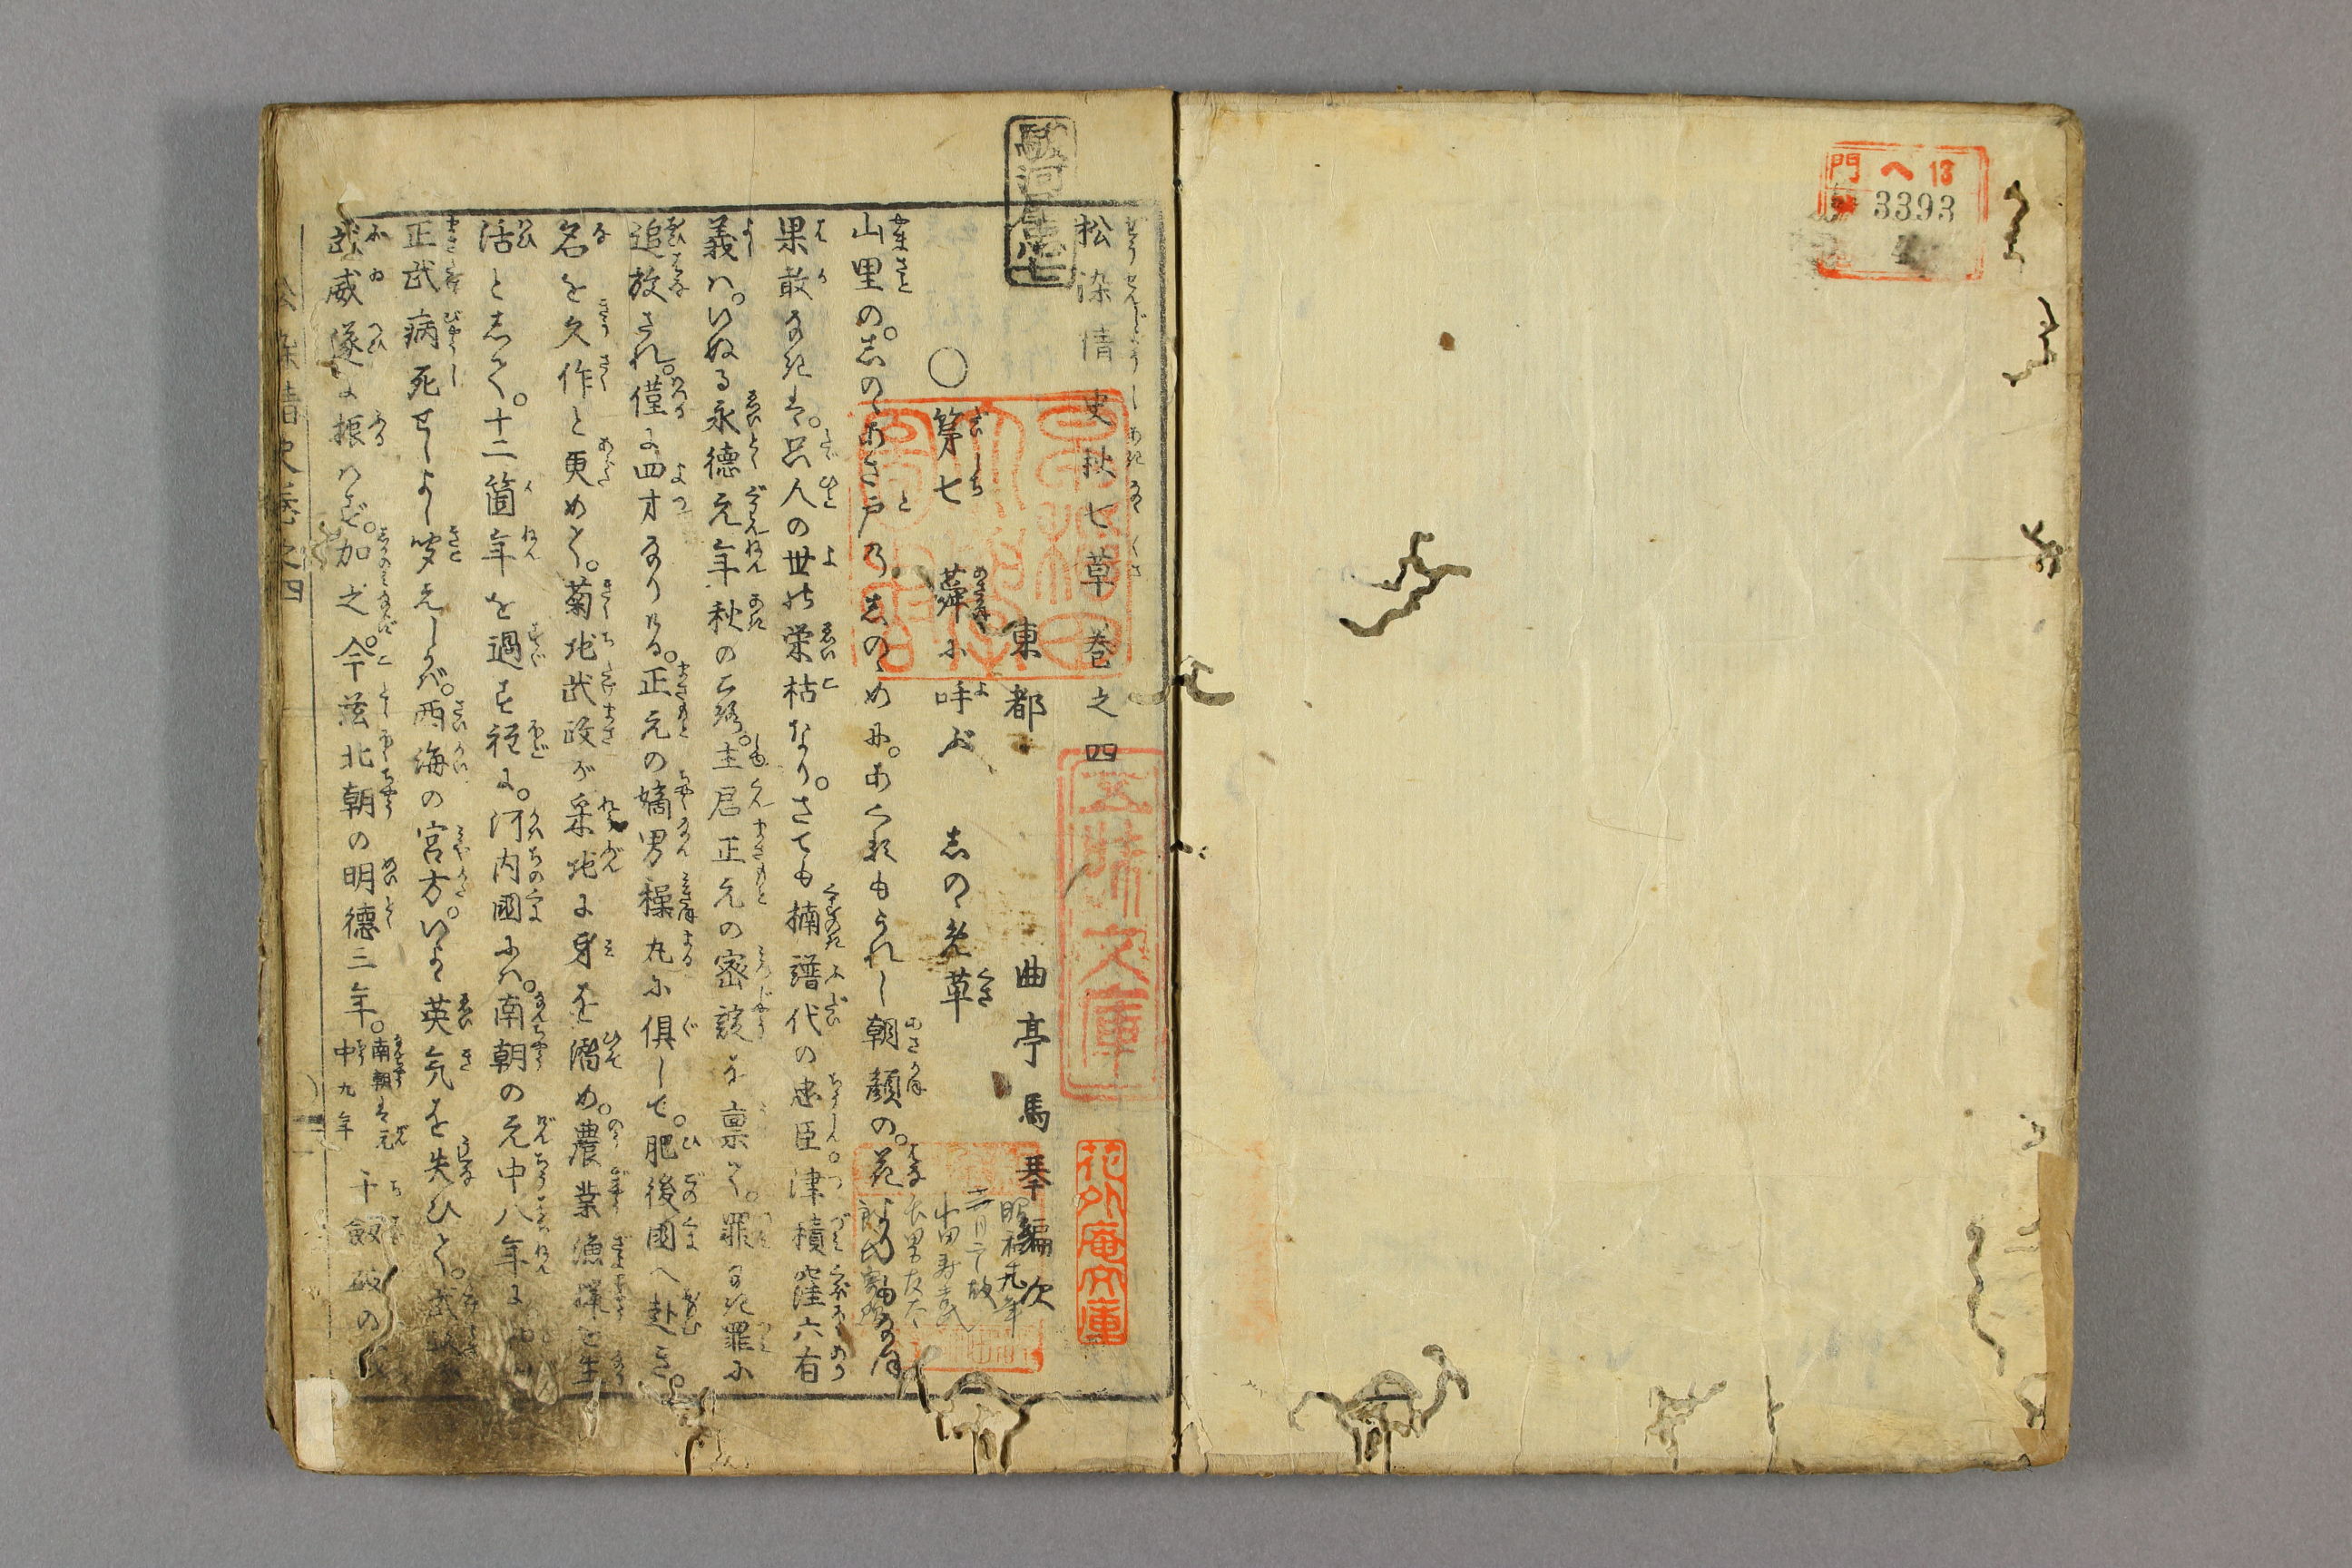 門 ヘ 13
3393
松染情史秋七草巻之四
東都 曲亭馬琴編次
○第七 蕣に呼ぶ しのぶ草
山里の。志のゝあさ戸のしのゝめに。あくるもうれし朝顔の。花
果敢なきは。只人の世の栄枯なり。さても楠譜代の忠臣津積窪六有
義は。いぬる永徳元年秋のころ。主君正元の密談を禀て。罪なき罪に
追放され。僅に四才なりける。正元の嫡男操丸に倶して。肥後國へ赴き。
名を久作と更めて。菊地武政が采地に身を濳め。農業漁
活として。十二箇年を過す程に。河内國には。南朝の元中八年に
正武病死せしよし聞えしが。西海の宮方。いよゝ英気を失ひて。
武威遂に振はず。加之。今茲北朝の明徳三年。南朝は元中九年 千劔破の
松染情史巻之四
五荘文庫
花外庵文庫